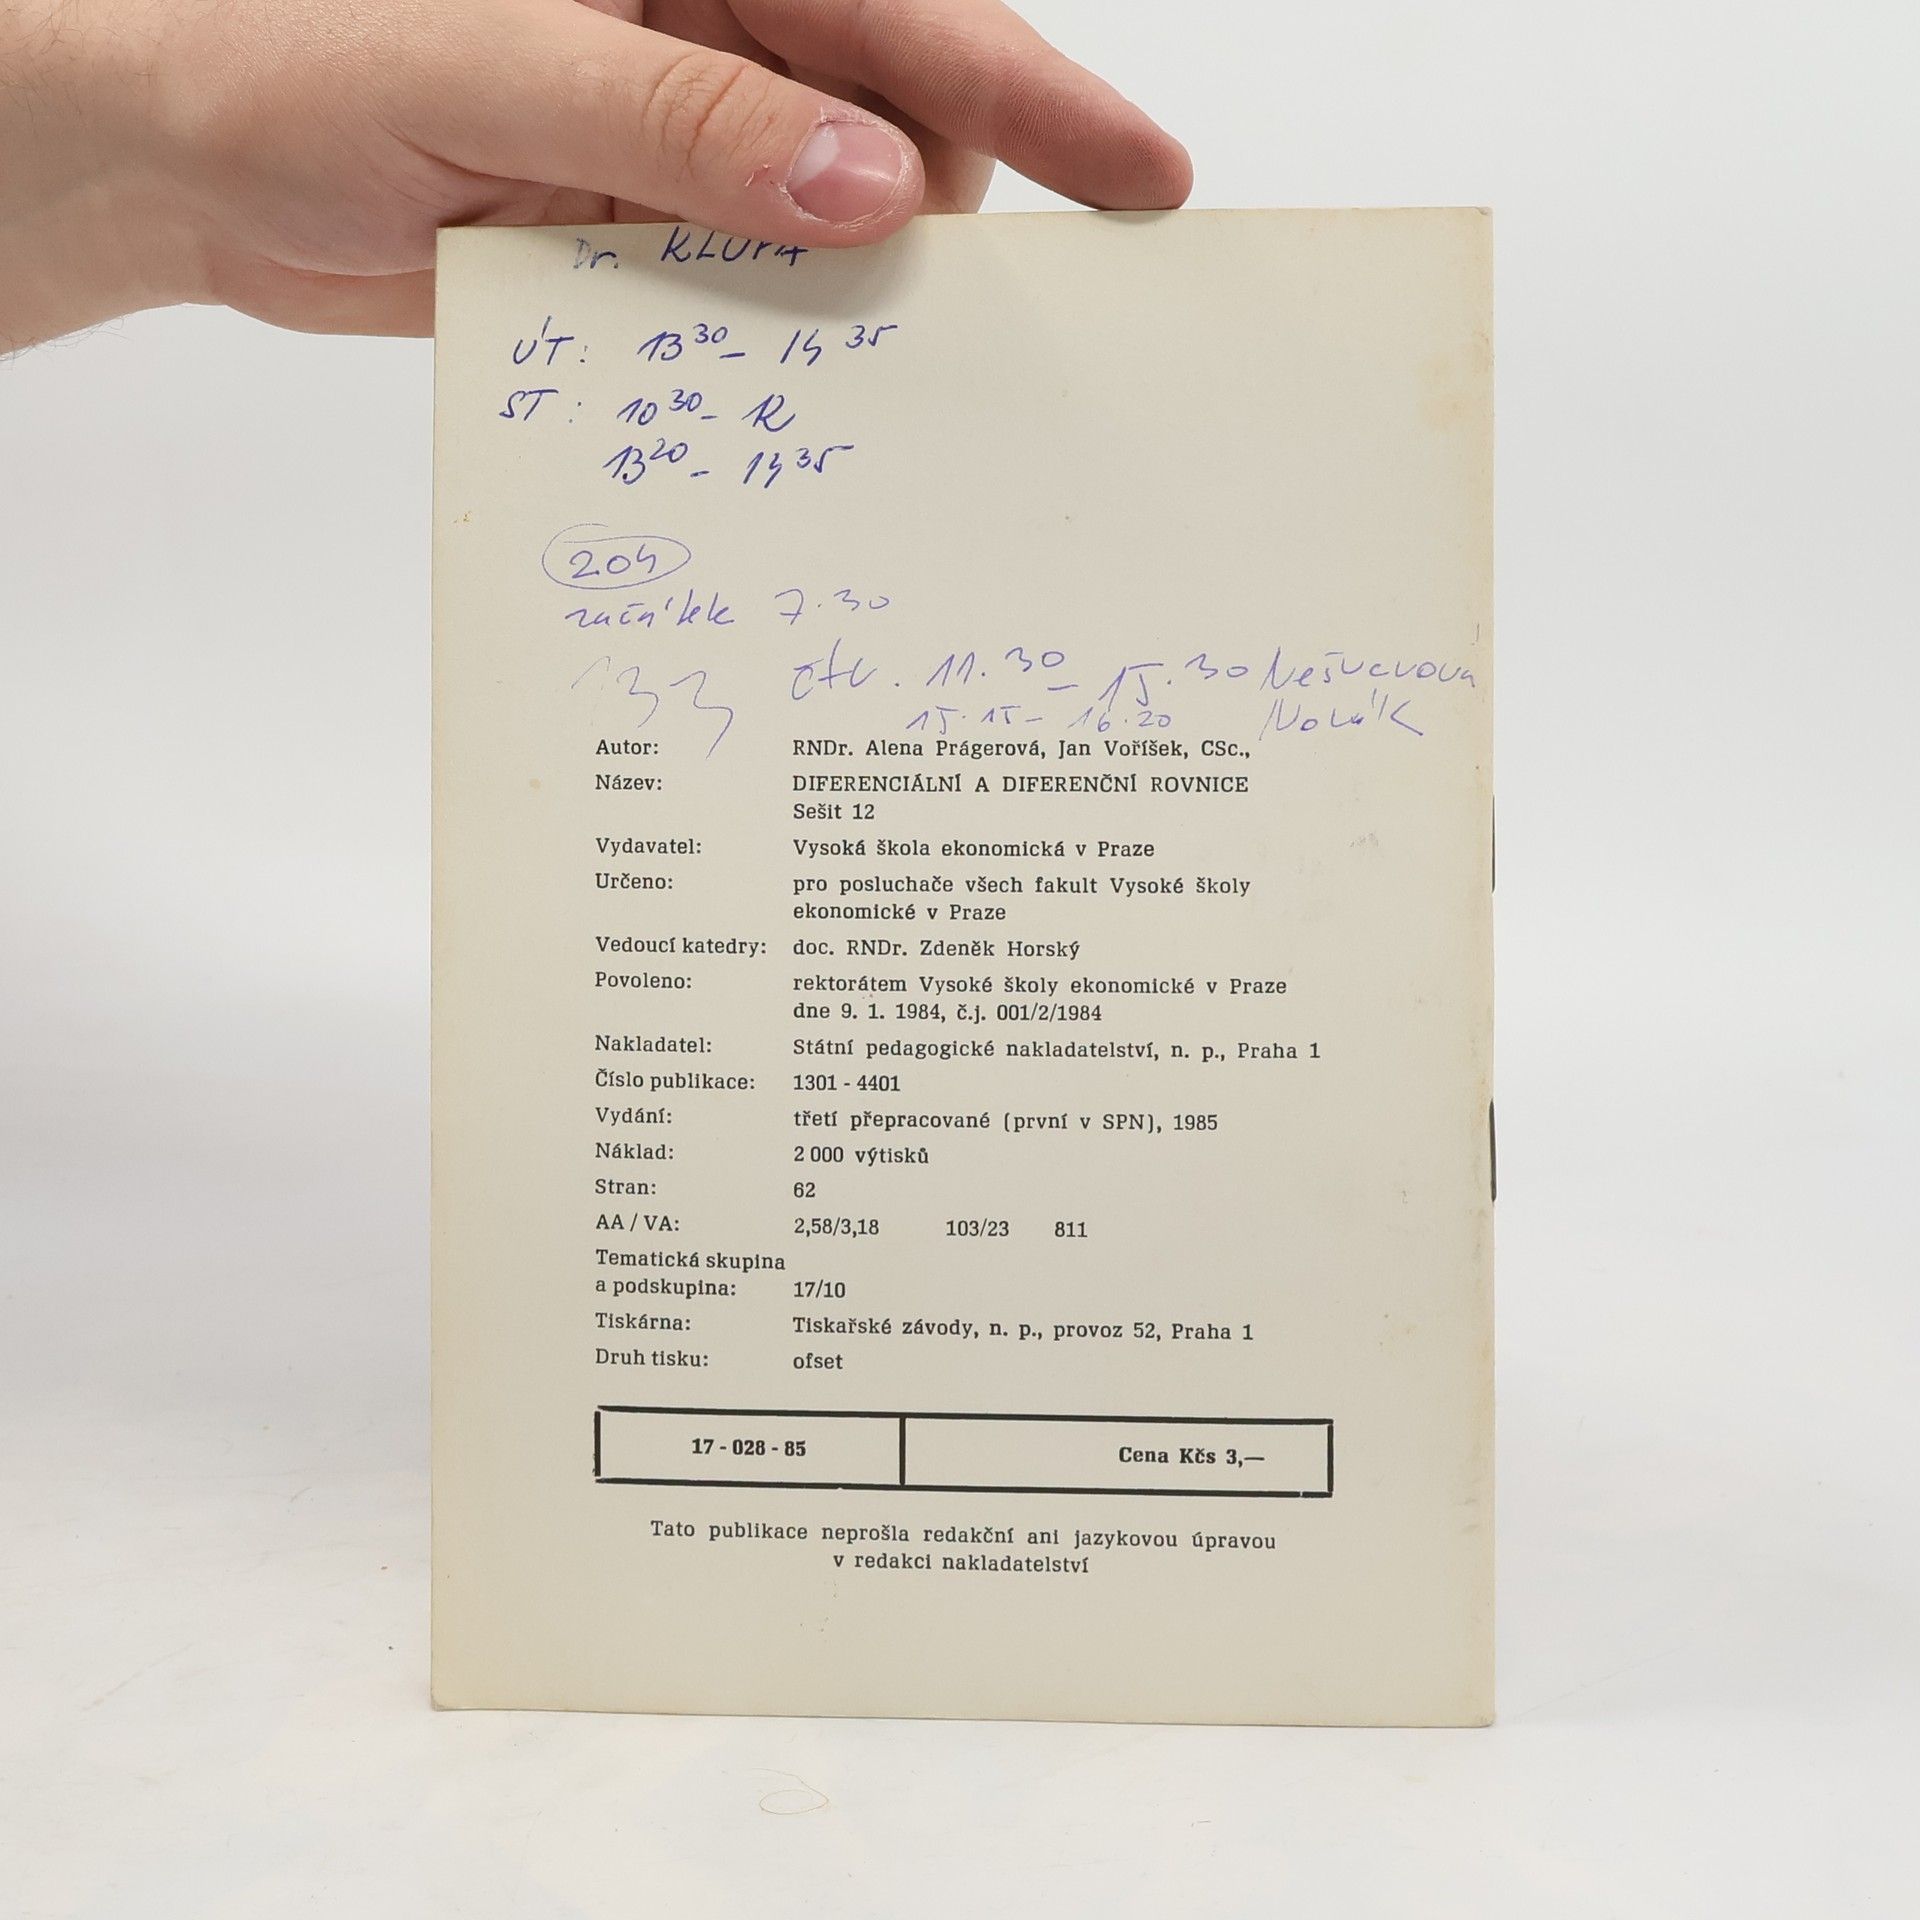 Dr.
ÚT: 13 30 - 14 35
ST: 10 30 - 12
13 20 - 14 35
204
začátek 7.30
čtv. 11.30 - 15.30
15.15 - 16.20 Novák
Autor: RNDr. Alena Prágerová, Jan Voříšek, CSc.,
Název: DIFERENCIÁLNÍ A DIFERENČNÍ ROVNICE
Sešit 12
Vydavatel: Vysoká škola ekonomická v Praze
Určeno: pro posluchače všech fakult Vysoké školy
ekonomické v Praze
Vedoucí katedry: doc. RNDr. Zdeněk Horský
Povoleno: rektorátem Vysoké školy ekonomické v Praze
dne 9. 1. 1984, č.j. 001/2/1984
Nakladatel: Státní pedagogické nakladatelství, n. p., Praha 1
Číslo publikace: 1301 - 4401
Vydání: třetí přepracované (první v SPN), 1985
Náklad: 2 000 výtisků
Stran: 62
AA / VA: 2,58/3,18 103/23 811
Tematická skupina
a podskupina: 17/10
Tiskárna: Tiskařské závody, n. p., provoz 52, Praha 1
Druh tisku: ofset
17 - 028 - 85 Cena Kčs 3,—
Tato publikace neprošla redakční ani jazykovou úpravou
v redakci nakladatelství